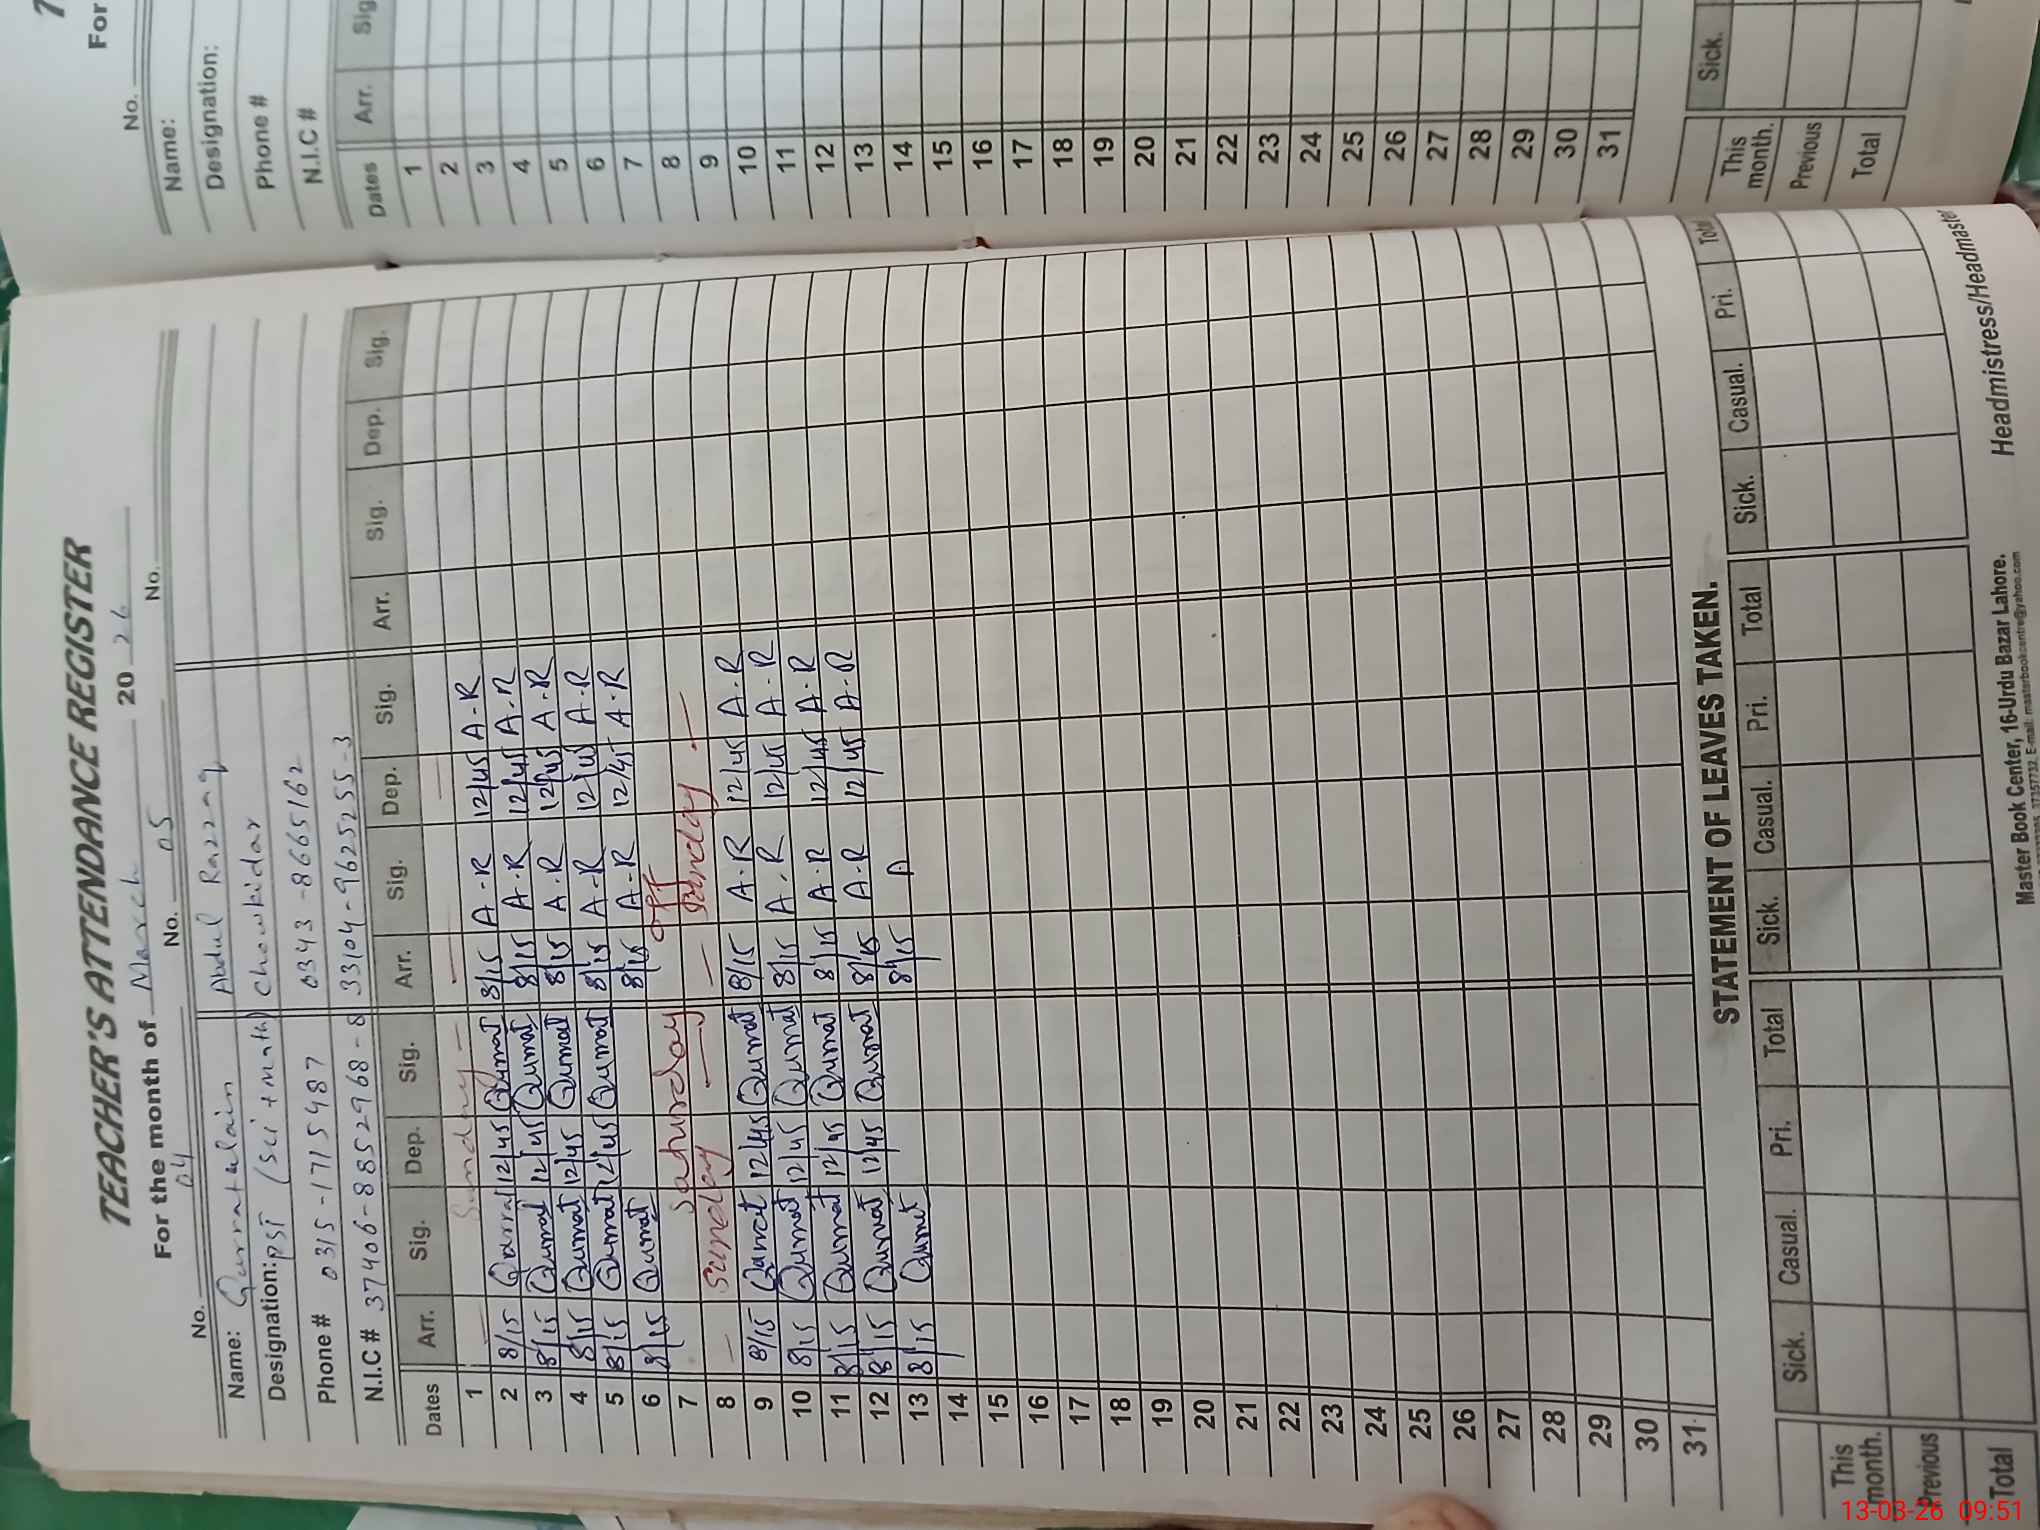 TEACHER'S ATTENDANCE REGISTER
For the month of March 2026
No. 04 No. 05 No.
Name: Qurratulain Abdul Razzaq
Designation: PST (Sci + Math) Chowkidar
Phone # 0315-1715487 0343-8665162
N.I.C # 37406-8852968-8 33104-9625255-3
Dates Arr. Sig. Dep. Sig. Arr. Sig. Dep. Sig. Arr. Sig. Dep. Sig.
1 — Sunday — — —
2 8/15 Qurrat 12/45 Qurrat 8/15 A-R 12/45 A-R
3 8/15 Qurrat 12/45 Qurrat 8/15 A-R 12/45 A-R
4 8/15 Qurrat 12/45 Qurrat 8/15 A-R 12/45 A-R
5 8/15 Qurrat 12/45 Qurrat 8/15 A-R 12/45 A-R
6 8/15 Qurrat 8/15 A-R 12/45 A-R
7 Sathurday off
8 — Sunday — — Sunday —
9 8/15 Qurrat 12/45 Qurrat 8/15 A-R 12/45 A-R
10 8/15 Qurrat 12/45 Qurrat 8/15 A-R 12/45 A-R
11 8/15 Qurrat 12/45 Qurrat 8/15 A-R 12/45 A-R
12 8/15 Qurrat 12/45 Qurrat 8/15 A-R 12/45 A-R
13 8/15 Qurrat 8/15 A
14
15
16
17
18
19
20
21
22
23
24
25
26
27
28
29
30
31
STATEMENT OF LEAVES TAKEN.
Sick. Casual. Pri. Total Sick. Casual. Pri. Total Sick. Casual. Pri. Total
This month.
Previous
Total
Master Book Center, 16-Urdu Bazar Lahore.
Headmistress/Headmaster
For
No.
Name:
Designation:
Phone #
N.I.C #
Dates Arr. Sig
1
2
3
4
5
6
7
8
9
10
11
12
13
14
15
16
17
18
19
20
21
22
23
24
25
26
27
28
29
30
31
Sick.
This month.
Previous
Total
13-03-26 09:51